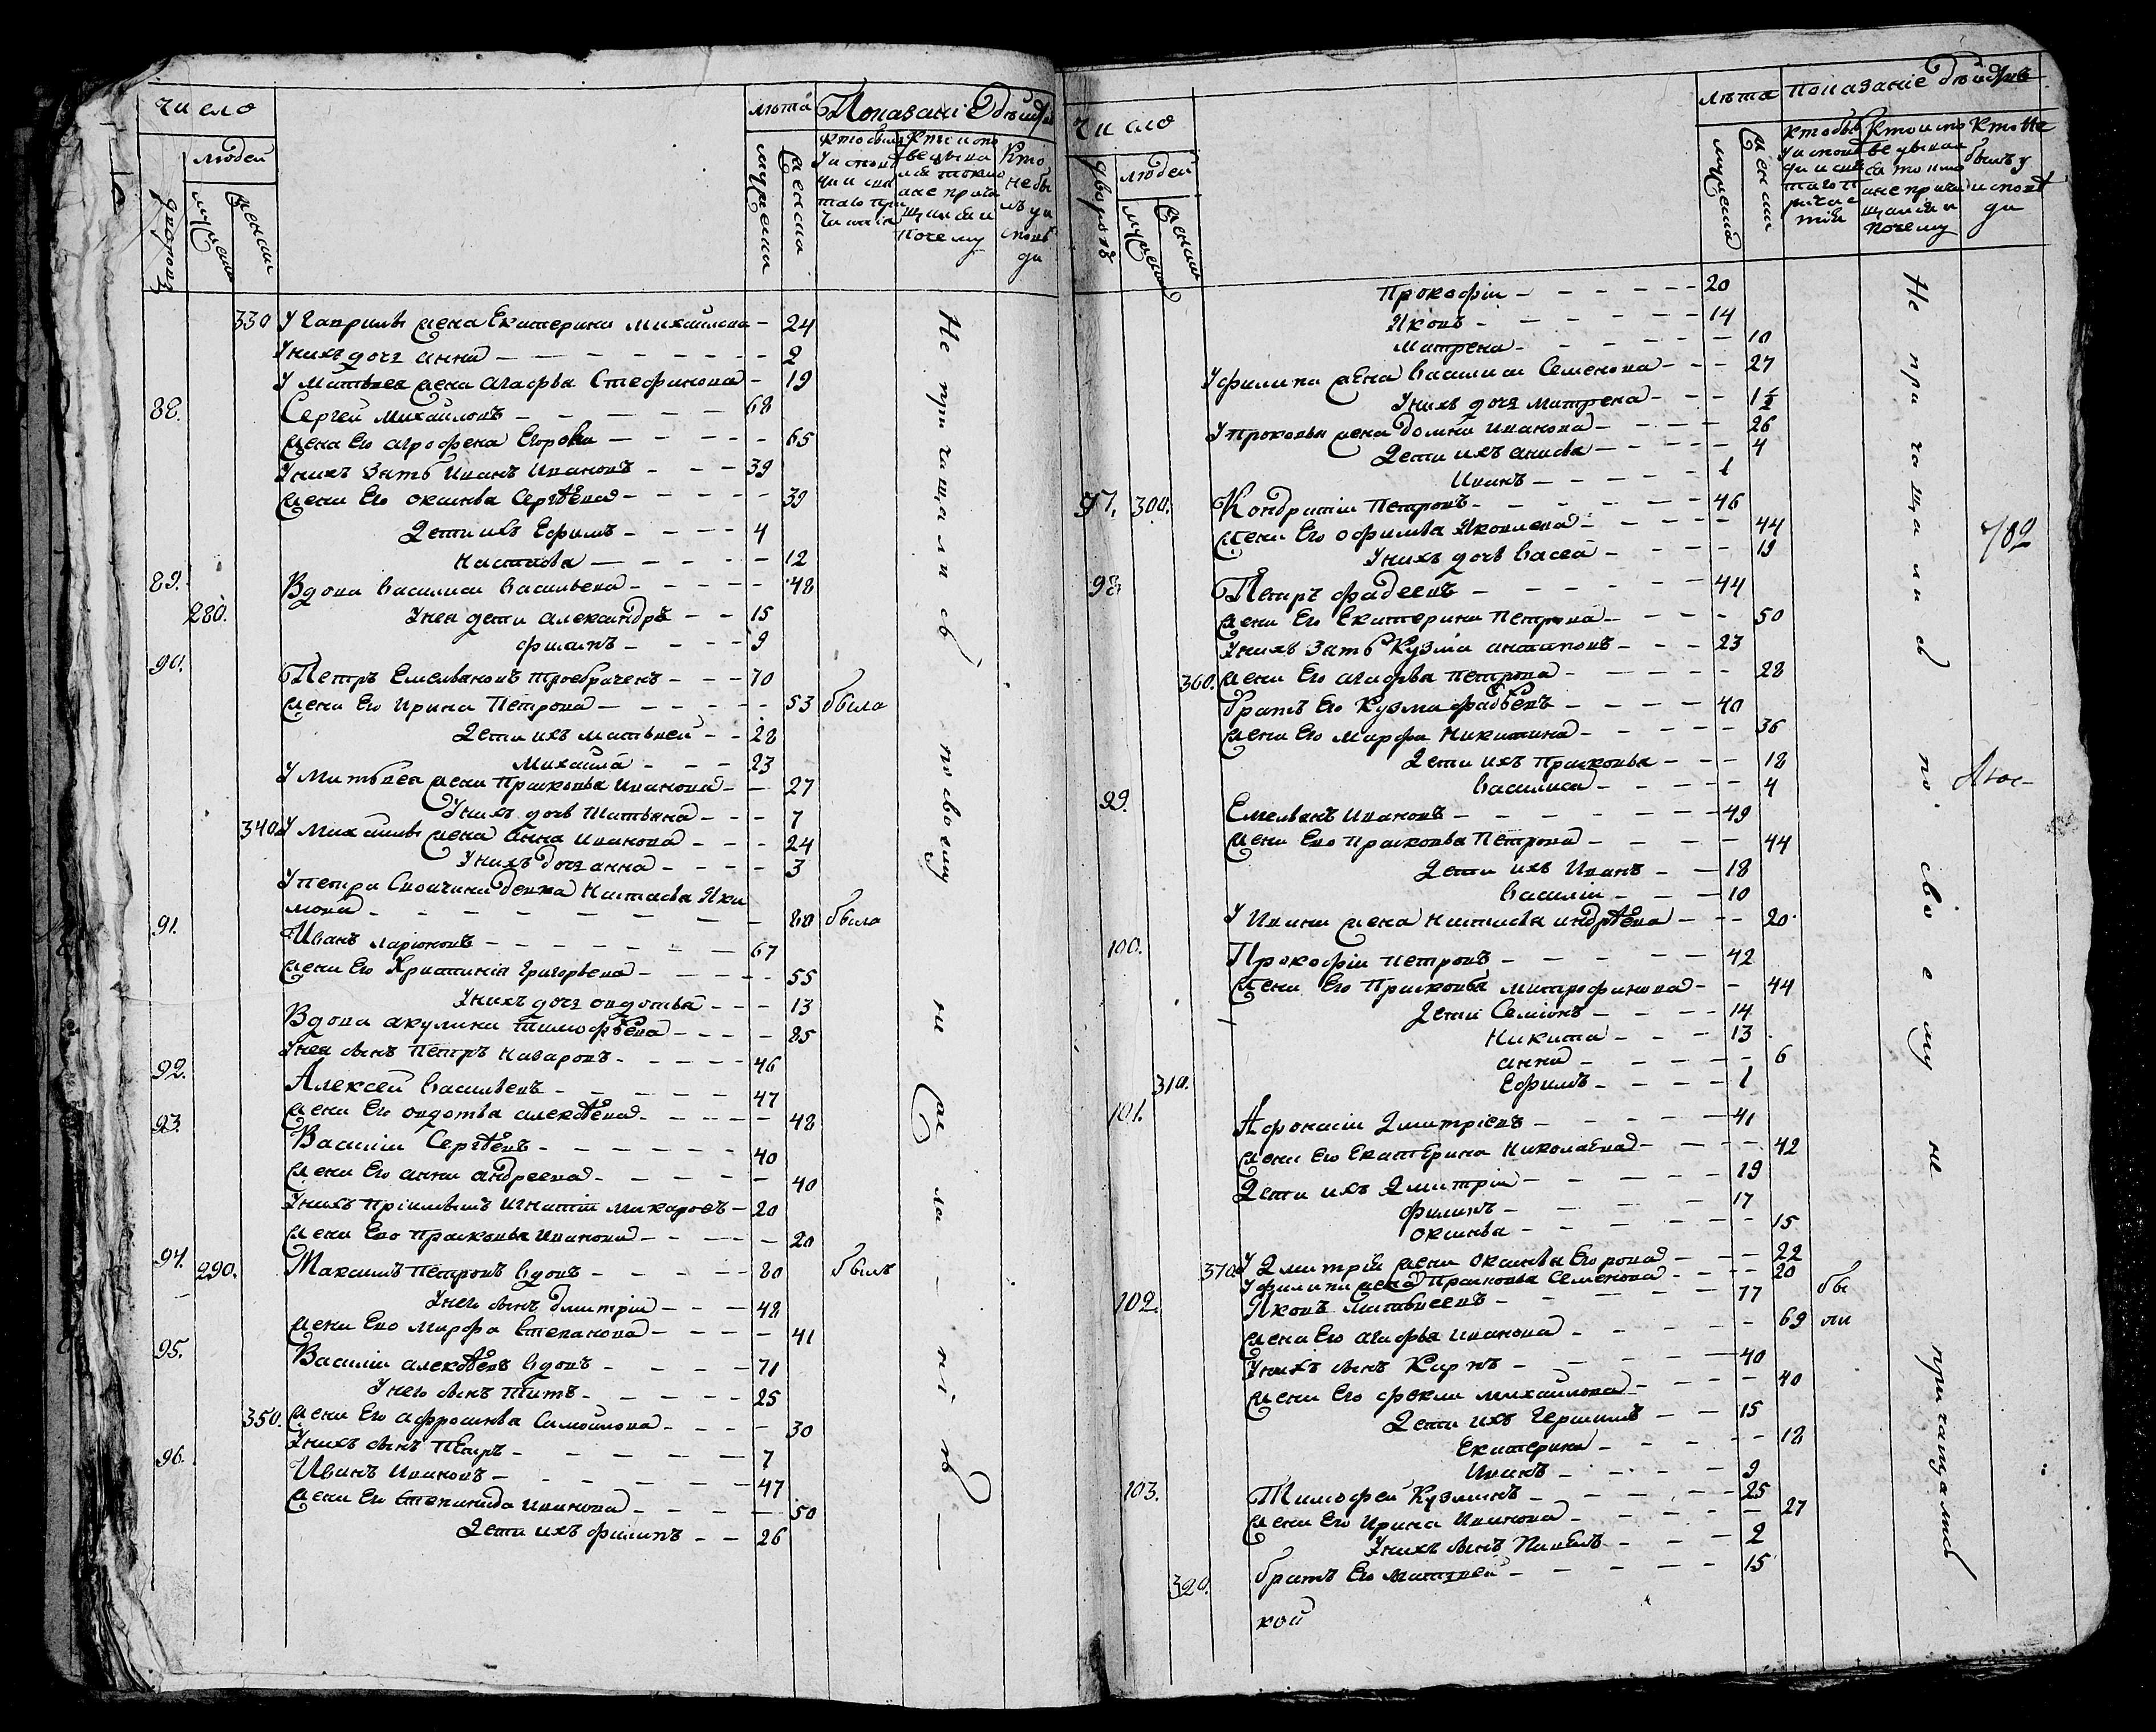 число
людей
дворовъ
мужеска
женска
лѣта
мужеска
женска
Показаніе Дѣйства
Кто
не бы
лъ у и
спове
ди
330 У Гаврилы жена Екатерина Михайлова 24
У нихъ дочь Анна 2
У Матвея жена Агафья Стефанова 19
88. Сергей Михайловъ 68
жена Его Агрофена Егорова 65
У нихъ Зять Иванъ Ивановъ 39
жена Его Оксинья Сергѣева 39
Дети ихъ Ефимъ 4
Настасья 12
89. Вдова Василиса Васильева 48
280. У нея дети Александръ 15
Филипъ 9
90. Петръ Емельяновъ троебраченъ 70
жена Его Ирина Петрова 53 была
Дети ихъ Матьвей 28
Михайла 23
У Матьвея жена Прасковья Иванова 27
У нихъ дочь Татьяна 7
340 У Михайлы жена Анна Иванова 24
У нихъ дочь Анна 3
У петра Своячина девка Настасья Яки
мова 80 была
91. Иванъ Ларіоновъ 67
жена Его Христинія Григорьева 55
У нихъ дочь Овдотья 13
Вдова Акулина Тимофѣева 85
У нея сынъ Петръ Назаровъ 46
92. Алексей Васильевъ 47
жена Его Овдотья Алексѣева 48
93. Василій Сергѣевъ 40
жена Его Анна Андреева 40
У нихъ Пріимышъ Игнатій Макаровъ 20
жена Ево Прасковья Иванова 20
94. 290. Максимъ Петровъ Вдовъ 80 былъ
У него сынъ Дмитрій 48
жена Ево Марфа Степанова 41
95. Василій Алексѣевъ Вдовъ 71
У него сынъ Титъ 25
350. жена Его Афросинья Самойлова 30
У нихъ сынъ Петръ 7
96. Иванъ Ивановъ 47
жена Его Степанида Иванова 50
Дети ихъ Филипъ 26
Не причащались по своему не
число
людей
дворовъ
мужеска
женска
лѣта
мужеска
женска
показаніе дѣйства
Кто не
былъ у
исповѣ
ди
Прокофіи 20
Яковъ 14
Матрена 10
У Филипа жена Василиса Семенова 27
У нихъ дочь Матрена 1½
У Прокофья жена Домна Иванова 26
Дети ихъ Анисья 4
Иванъ 1
97. 300. Кондратій Петровъ 46
жена Его Офимья Яковлева 44
У нихъ дочь Васса 19
98 Петръ Фадеевъ 44
жена Его Екатерина Петрова 50
У нихъ Зять Кузма Антиповъ 23
360. жена Его Агафья Петрова 28
братъ Его Кузма Фадѣевъ 40
жена Его Марфа Никитина 36
Дети ихъ Прасковья 18
Василиса 4
99. Емельянъ Ивановъ 49
жена Ево Прасковья Петрова 44
Дети ихъ Иванъ 18
Василій 10
У Ивана жена Настасья Андрѣева 20
100. Прокофіи Петровъ 42
жена Его Прасковья Митрофанова 44
Дети Семіонъ 14
Никита 13
Анна 6
310. Ефимъ 1
101. Афонасіи Дмитріевъ 41
жена Его Екатерина Николаева 42
Дети ихъ Дмитрій 19
Филипъ 17
Оксинья 15
370 У Дмитрій жена Оксинья Егорова 22
У Филипа жена Прасковья Семенова 20
102. Яковъ Матвѣевъ 77 бы
жена Его Агафья Иванова 69 ли
У нихъ сынъ Карпъ 40
жена Его Фекла Михайлова 40
Дети ихъ Герасимъ 15
Екатерина 18
Иванъ 9
103. Тимофей Кузминъ 25
жена Его Ирина Иванова 27
У нихъ сынъ Павелъ 2
320. братъ Его Матвей 15
кой
Не причащались по своему не
причащались
702